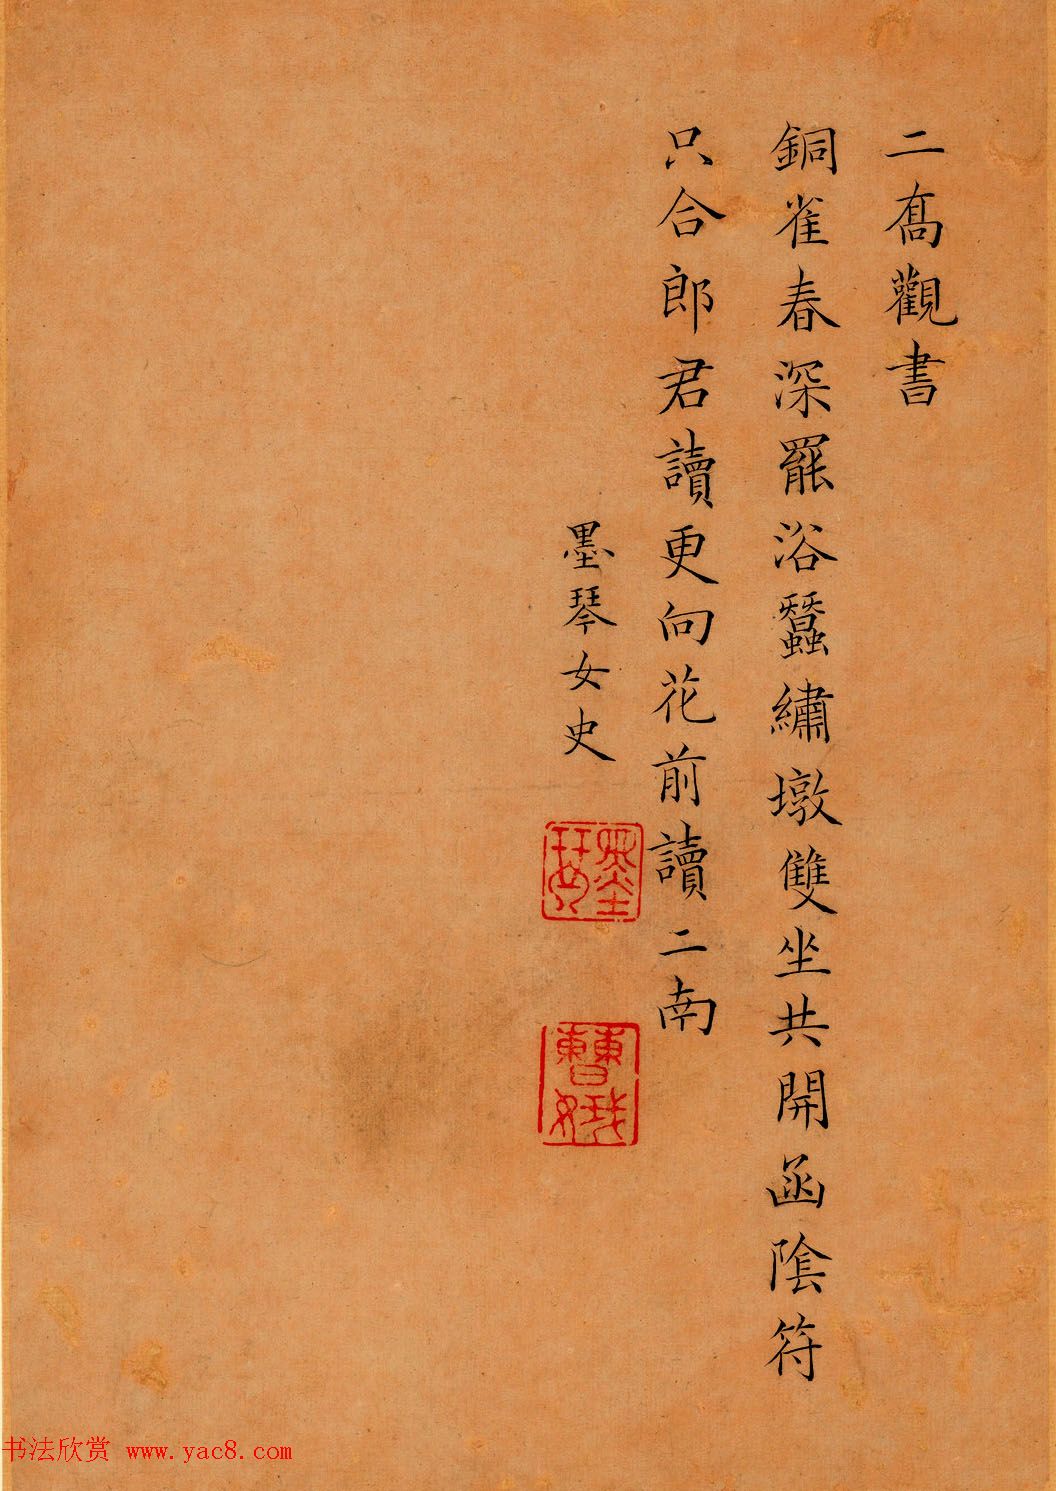 二喬觀書
銅雀春深罷浴蠶繡墩雙坐共開函陰符
只合郎君讀更向花前讀二南
墨琴女史
墨琴
曹娥
书法欣赏 www.yac8.com